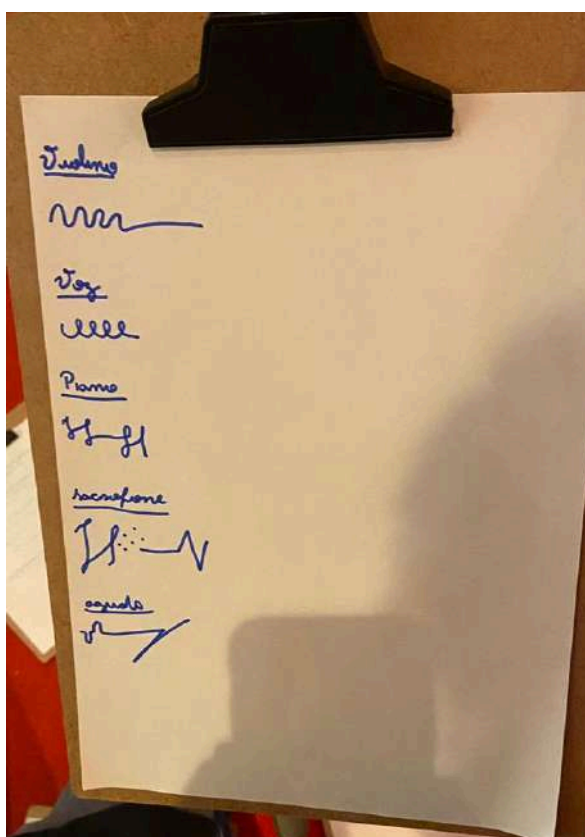 Violino
Voz
Piano
sacsofone
agudo